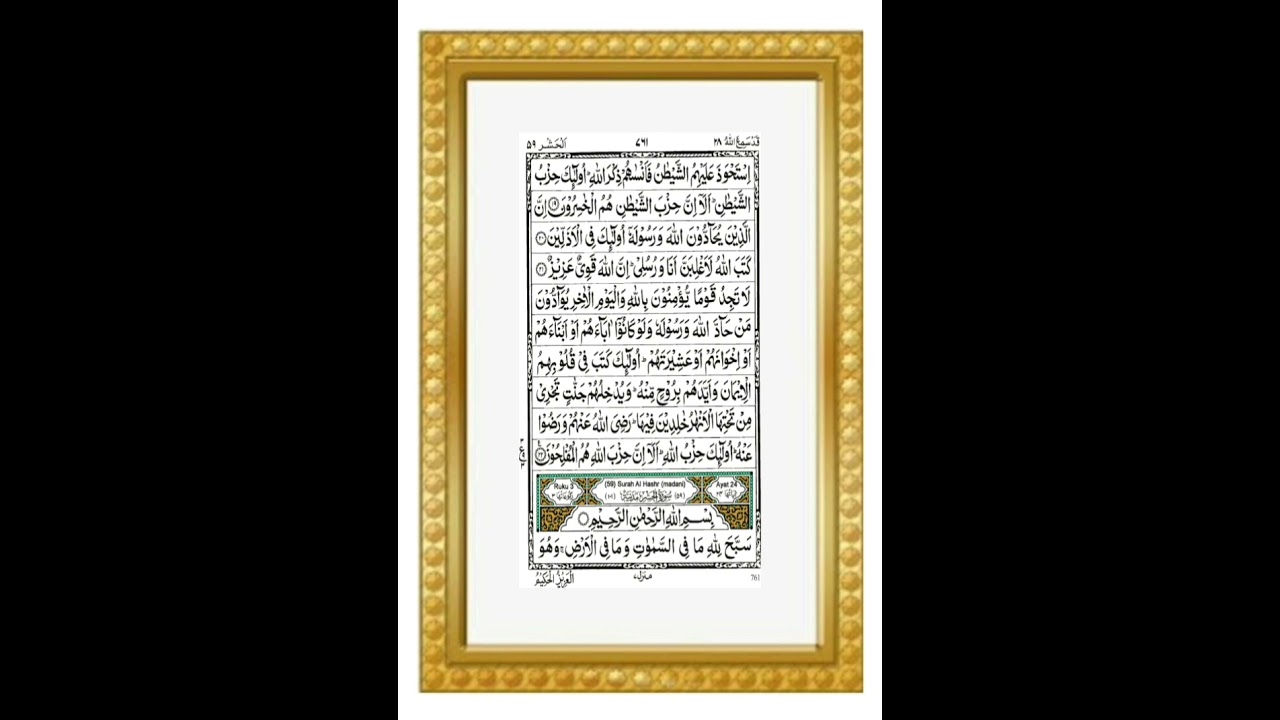 قَدْسَمِعَ اللّٰهُ ٢٨ ٧٦١ اَلْحَشْر ٥٩
اِسْتَحْوَذَ عَلَيْهِمُ الشَّيْطٰنُ فَاَنْسٰىهُمْ ذِكْرَ اللّٰهِ ؕ اُولٰٓئِكَ حِزْبُ
الشَّيْطٰنِ ؕ اَلَاۤ اِنَّ حِزْبَ الشَّيْطٰنِ هُمُ الْخٰسِرُوْنَ ۝١٩ اِنَّ
الَّذِيْنَ يُحَآدُّوْنَ اللّٰهَ وَرَسُوْلَهٗۤ اُولٰٓئِكَ فِى الْاَذَلِّيْنَ ۝٢٠
كَتَبَ اللّٰهُ لَاَغْلِبَنَّ اَنَا وَرُسُلِىْ ؕ اِنَّ اللّٰهَ قَوِىٌّ عَزِيْزٌ ۝٢١
لَا تَجِدُ قَوْمًا يُّؤْمِنُوْنَ بِاللّٰهِ وَالْيَوْمِ الْاٰخِرِ يُوَآدُّوْنَ
مَنْ حَآدَّ اللّٰهَ وَرَسُوْلَهٗ وَلَوْ كَانُوْۤا اٰبَآءَهُمْ اَوْ اَبْنَآءَهُمْ
اَوْ اِخْوَانَهُمْ اَوْ عَشِيْرَتَهُمْ ؕ اُولٰٓئِكَ كَتَبَ فِىْ قُلُوْبِهِمُ
الْاِيْمَانَ وَاَيَّدَهُمْ بِرُوْحٍ مِّنْهُ ؕ وَيُدْخِلُهُمْ جَنّٰتٍ تَجْرِىْ
مِنْ تَحْتِهَا الْاَنْهٰرُ خٰلِدِيْنَ فِيْهَا ؕ رَضِىَ اللّٰهُ عَنْهُمْ وَرَضُوْا
عَنْهُ ؕ اُولٰٓئِكَ حِزْبُ اللّٰهِ ؕ اَلَاۤ اِنَّ حِزْبَ اللّٰهِ هُمُ الْمُفْلِحُوْنَ ۝٢٢
Ruku 3 (59) Surah Al Hashr (madani) Ayat 24
بِسْمِ اللّٰهِ الرَّحْمٰنِ الرَّحِيْمِ
سَبَّحَ لِلّٰهِ مَا فِى السَّمٰوٰتِ وَمَا فِى الْاَرْضِ ۚ وَهُوَ
الْعَزِيْزُ الْحَكِيْمُ منزل٧ 761